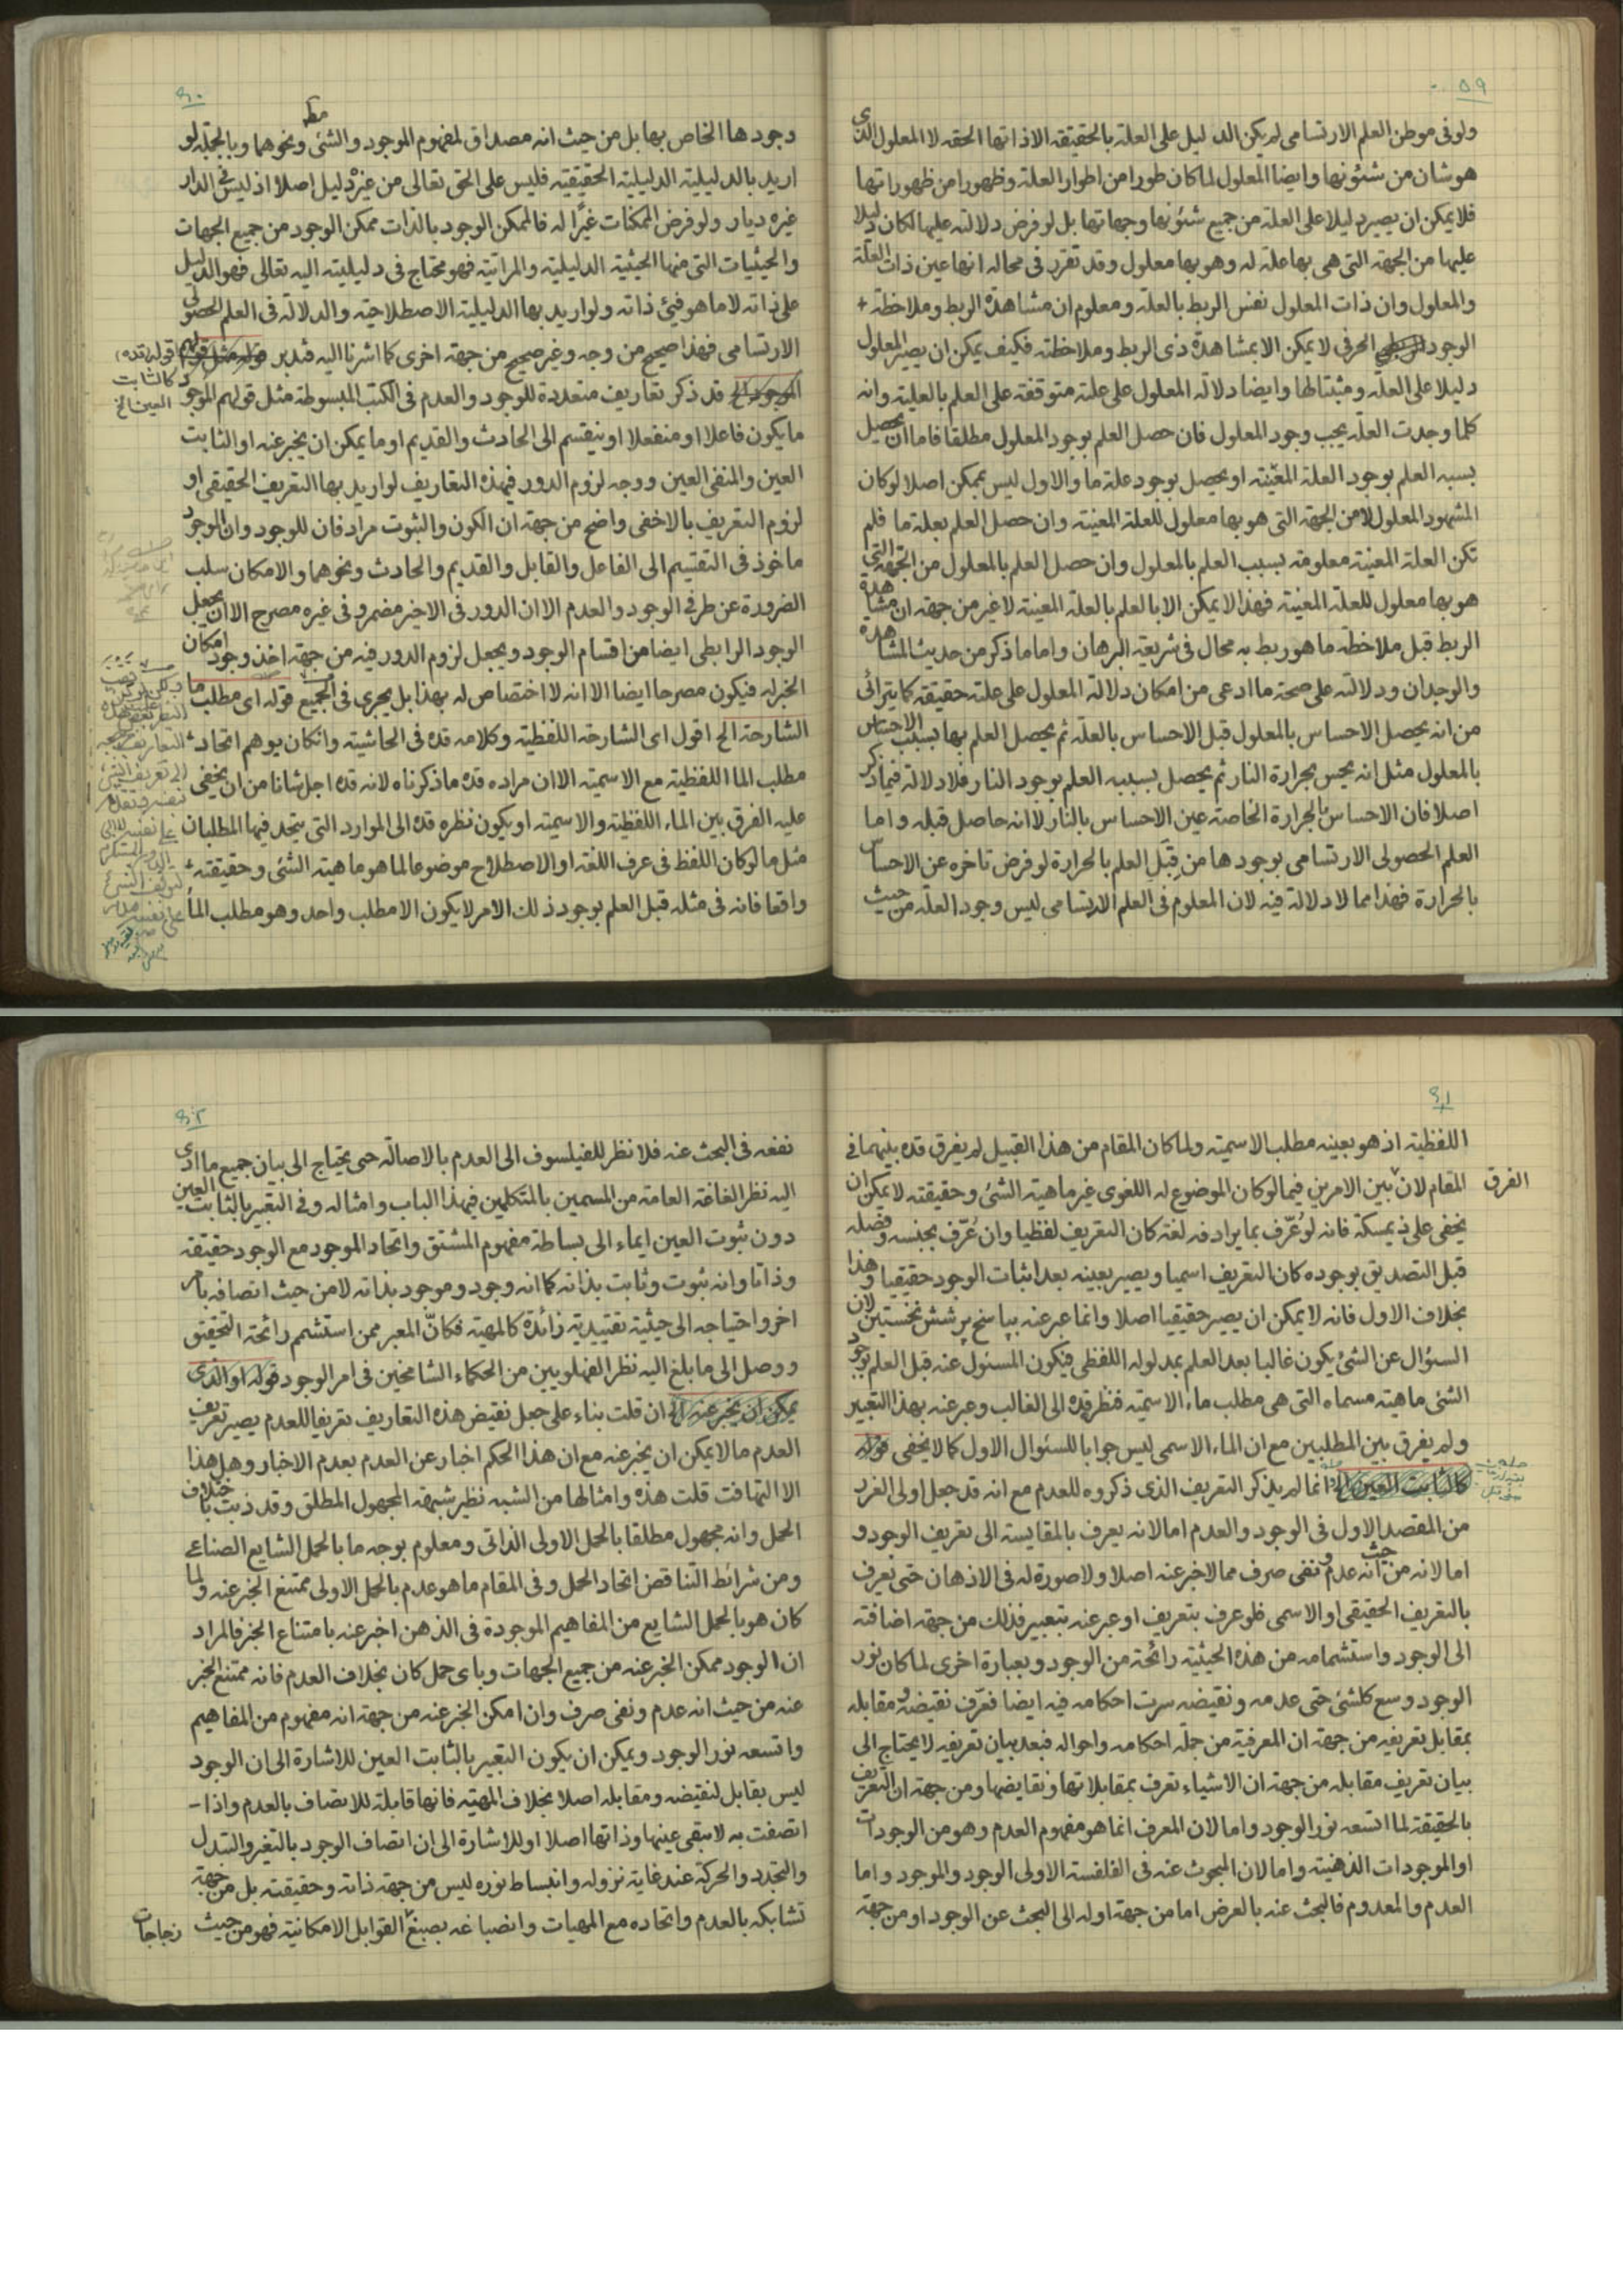 ٥٩
ولو فى موطن العلم الارتسامى لم يكن الدليل على العلة بالحقيقة الا ذاتها الحقه لا المعلول الذى
هو شان من شئونها وايضا المعلول لما كان طورا من اطوار العلة وظهورا من ظهوراتها
فلا يمكن ان يصير دليلا على العلة من جميع شئونها وجهاتها بل لو فرض دلالته عليها لكان دليلا
عليها من الجهة التى هى بها علة له وهو بها معلول وقد تقرر فى محاله انها عين ذات العلة
والمعلول وان ذات المعلول نفس الربط بالعلة ومعلوم ان مشاهدة الربط وملاحظة +
الوجود الحرفى لا يمكن الا بمشاهدة ذى الربط وملاحظته فكيف يمكن ان يصير المعلول
دليلا على العلة ومثبتا لها وايضا دلالة المعلول على علته متوقفة على العلم بالعلية وانه
كلما وجدت العلة يجب وجود المعلول فان حصل العلم بوجود المعلول مطلقا فاما ان يحصل
بسببه العلم بوجود العلة المعينة او يحصل بوجود علة ما والاول ليس بممكن اصلا لو كان
المشهود المعلول لا من الجهة التى هو بها معلول للعلة المعينة وان حصل العلم بعلة ما فلم
تكن العلة المعينة معلومة بسبب العلم بالمعلول وان حصل العلم بالمعلول من الجهة التى
هو بها معلول للعلة المعينة فهذا لا يمكن الا بالعلم بالعلة المعينة لا غير من جهة ان مشاهدة
الربط قبل ملاحظة ما هو ربط به محال فى شريعة البرهان واما ما ذكر من حديث المشاهدة
والوجدان ودلالته على صحة ما ادعى من امكان دلالة المعلول على علته حقيقة كما يترائى
من انه يحصل الاحساس بالمعلول قبل الاحساس بالعلة ثم يحصل العلم بها بسبب الاحساس
بالمعلول مثل انه يحس بحرارة النار ثم يحصل بسببه العلم بوجود النار فلا دلالة فيما ذكر
اصلا فان الاحساس بالحرارة الخاصة عين الاحساس بالنار لا انه حاصل قبله واما
العلم الحصولى الارتسامى بوجودها من قبل العلم بالحرارة لو فرض تاخره عن الاحساس
بالحرارة فهذا مما لا دلالة فيه لان المعلوم فى العلم الارتسامى ليس وجود العلة من حيث
٦٠
وجودها الخاص بها بل من حيث انه مصداق لمفهوم الموجود والشئ ونحوهما وبالجملة لو
اريد بالدليلية الدليلية الحقيقية فليس على الحق تعالى من غيره دليل اصلا اذ ليس فى الدار
غيره ديار ولو فرض الممكنات غيرا له فالممكن الوجود بالذات ممكن الوجود من جميع الجهات
والحيثيات التى منها الحيثية الدليلية والمراتية فهو محتاج فى دليليته اليه تعالى فهو الدليل
على ذاته لا ما هو فيئ ذاته ولو اريد بها الدليلية الاصطلاحية والدلالة فى العلم الحصولى
الارتسامى فهذا صحيح من وجه وغير صحيح من جهة اخرى كما اشرنا اليه فتدبر قوله مثل قولهم (قوله قده)
كالثابت العين الخ
الموجود الخ قد ذكر تعاريف متعددة للوجود والعدم فى الكتب المبسوطة مثل قولهم الموجود
ما يكون فاعلا او منفعلا او ينقسم الى الحادث والقديم او ما يمكن ان يخبر عنه او الثابت
العين والمنفى العين ووجه لزوم الدور فهذه التعاريف لو اريد بها التعريف الحقيقى او
لزوم التعريف بالاخفى واضح من جهة ان الكون والثبوت مرادفان للوجود وان الوجود
ماخوذ فى التقسيم الى الفاعل والقابل والقديم والحادث ونحوهما والامكان سلب
الضرورة عن طرفى الوجود والعدم الا ان الدور فى الاخير مضمر وفى غيره مصرح الا ان يجعل
الوجود الرابطى ايضا من اقسام الوجود ويجعل لزوم الدور فيه من جهة اخذ وجود امكان
الخبر له فيكون مصرحا ايضا الا انه لا اختصاص له بهذا بل يجرى فى الجميع قوله اى مطلب ما
الشارحة الخ اقول اى الشارحة اللفظية وكلامه قده فى الحاشية وانكان يوهم اتحاد
مطلب الما اللفظية مع الاسمية الا ان مراده قده ما ذكرناه لانه قده اجل شانا من ان يخفى
عليه الفرق بين الماء اللفظية والاسمية او يكون نظره قده الى الموارد التى يتحد فيها المطلبان
مثل ما لو كان اللفظ فى عرف اللغة او الاصطلاح موضوعا لما هو ماهية الشئ وحقيقته
واقعا فانه فى مثله قبل العلم بوجود ذلك الامر لا يكون الا مطلب واحد وهو مطلب الماء
٦١
اللفظية اذ هو بعينه مطلب الاسمية ولما كان المقام من هذا القبيل لم يفرق قده بينهما فى
المقام لان الفرق بين الامرين فيما لو كان الموضوع له اللغوى غير ماهية الشئ وحقيقته لا يمكن ان
يخفى على ذى مسكة فانه لو عُرّف بما يرادفه لغة كان التعريف لفظيا وان عُرّف بجنسه وفصله
قبل التصديق بوجوده كان التعريف اسميا ويصير بعينه بعد اثبات الوجود حقيقيا وهذا
بخلاف الاول فانه لا يمكن ان يصير حقيقيا اصلا وانما عبر عنه بپاسخ پرسش نخستين لان
السئوال عن الشئ يكون غالبا بعد العلم بمدلوله اللفظى فيكون المسئول عنه قبل العلم بوجود
الشئ ماهية مسماه التى هى مطلب ماء الاسمية فنظر قده الى الغالب وعبر عنه بهذا التعبير
ولم يفرق بين المطلبين مع ان الماء الاسمى ليس جوابا للسئوال الاول كما لا يخفى قوله
كالثابت العين الخ انما لم يذكر التعريف الذى ذكروه للعدم مع انه قد جعل اولى الغرر
من المقصد الاول فى الوجود والعدم اما لانه يعرف بالمقايسة الى تعريف الوجود و
اما لانه من حيث انه عدم و نفى صرف مما لا خبر عنه اصلا ولا صورة له فى الاذهان حتى يعرف
بالتعريف الحقيقى او الاسمى فلو عرف بتعريف او عبر عنه بتعبير فذلك من جهة اضافته
الى الوجود واستشمامه من هذه الحيثية رائحة من الوجود وبعبارة اخرى لما كان نور
الوجود وسع كلشئ حتى عدمه ونقيضه سرت احكامه فيه ايضا فعرّف نقيضه و مقابله
بمقابل تعريفه من جهة ان المعرفية من جملة احكامه واحواله فبعد بيان تعريفه لا يحتاج الى
بيان تعريف مقابله من جهة ان الاشياء تعرف بمقابلاتها ونقايضها ومن جهة ان التعريف
بالحقيقة لما اتسعه نور الوجود واما لان المعرف انما هو مفهوم العدم وهو من الوجودات
او الموجودات الذهنية واما لان المبحوث عنه فى الفلسفة الاولى الوجود والموجود واما
العدم والمعدوم فالبحث عنه بالعرض اما من جهة اوله الى البحث عن الوجود او من جهة
٦٢
نفعه فى البحث عنه فلا نظر للفيلسوف الى العدم بالاصالة حتى يحتاج الى بيان جميع ما ادى
اليه نظر الغاغة العامة من المسمين بالمتكلمين فى هذا الباب وامثاله وفى التعبير بالثابت العين
دون ثبوت العين ايماء الى بساطة مفهوم المشتق واتحاد الموجود مع الوجود حقيقة
وذاتا وانه ثبوت وثابت بذاته كما انه وجود وموجود بذاته لا من حيث اتصافه بامر
اخر واحتياجه الى حيثية تقييدية زائدة كالمهية فكانّ المعبر ممن استشمم رائحة التحقيق
ووصل الى ما بلغ اليه نظر الفهلويين من الحكماء الشامخين فى امر الوجود قوله او الذى
يمكن ان يخبر عنه الخ ان قلت بناء على جعل نقيض هذه التعاريف تعريفا للعدم يصير تعريف
العدم ما لا يمكن ان يخبر عنه مع ان هذا الحكم اخبار عن العدم بعدم الاخبار وهل هذا
الا التهافت قلت هذه وامثالها من الشبه نظير شبهة المجهول المطلق وقد ذبت باختلاف
الحمل وانه مجهول مطلقا بالحمل الاولى الذاتى ومعلوم بوجه ما بالحمل الشايع الصناعى
ومن شرائط التناقض اتحاد الحمل وفى المقام ما هو عدم بالحمل الاولى ممتنع الخبر عنه ولما
كان هو بالحمل الشايع من المفاهيم الموجودة فى الذهن اخبر عنه بامتناع الخبر فالمراد
ان الوجود ممكن الخبر عنه من جميع الجهات وباى حمل كان بخلاف العدم فانه ممتنع الخبر
عنه من حيث انه عدم ونفى صرف وان امكن الخبر عنه من جهة انه مفهوم من المفاهيم
واتسعه نور الوجود ويمكن ان يكون التعبير بالثابت العين للاشارة الى ان الوجود
ليس بقابل لنقيضه ومقابله اصلا بخلاف المهية فانها قابلة للاتصاف بالعدم واذا -
اتصفت به لا تبقى عينها وذاتها اصلا او للاشارة الى ان اتصاف الوجود بالتغير والتبدل
والتجدد والحركة عند غاية نزوله وانبساط نوره ليس من جهة ذاته وحقيقته بل من جهة
تشابكه بالعدم واتحاده مع المهيات وانصباغه بصبغ القوابل الامكانية فهو من حيث زجاجات